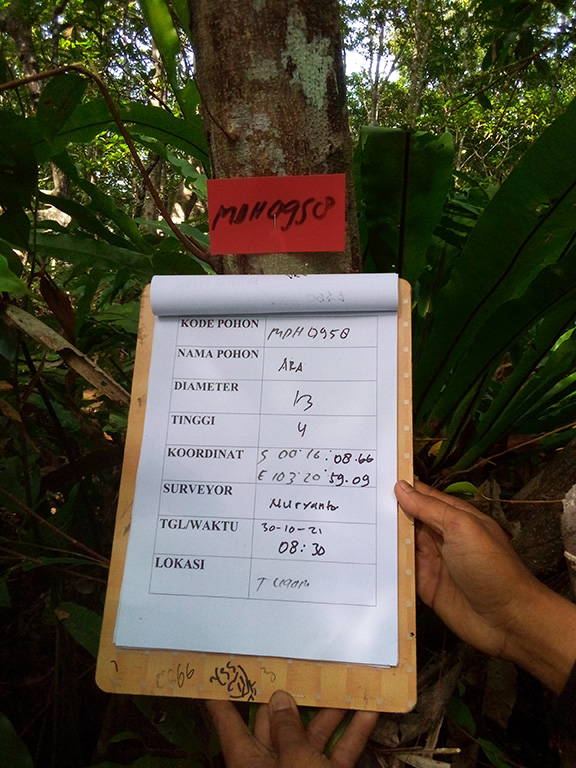 MDH 0958
KODE POHON MDH 0958
NAMA POHON ARA
DIAMETER 13
TINGGI 4
KOORDINAT S 00:16:08.66
E 103:20:59.09
SURVEYOR Nuryanto
TGL/WAKTU 30-10-21
08:30
LOKASI